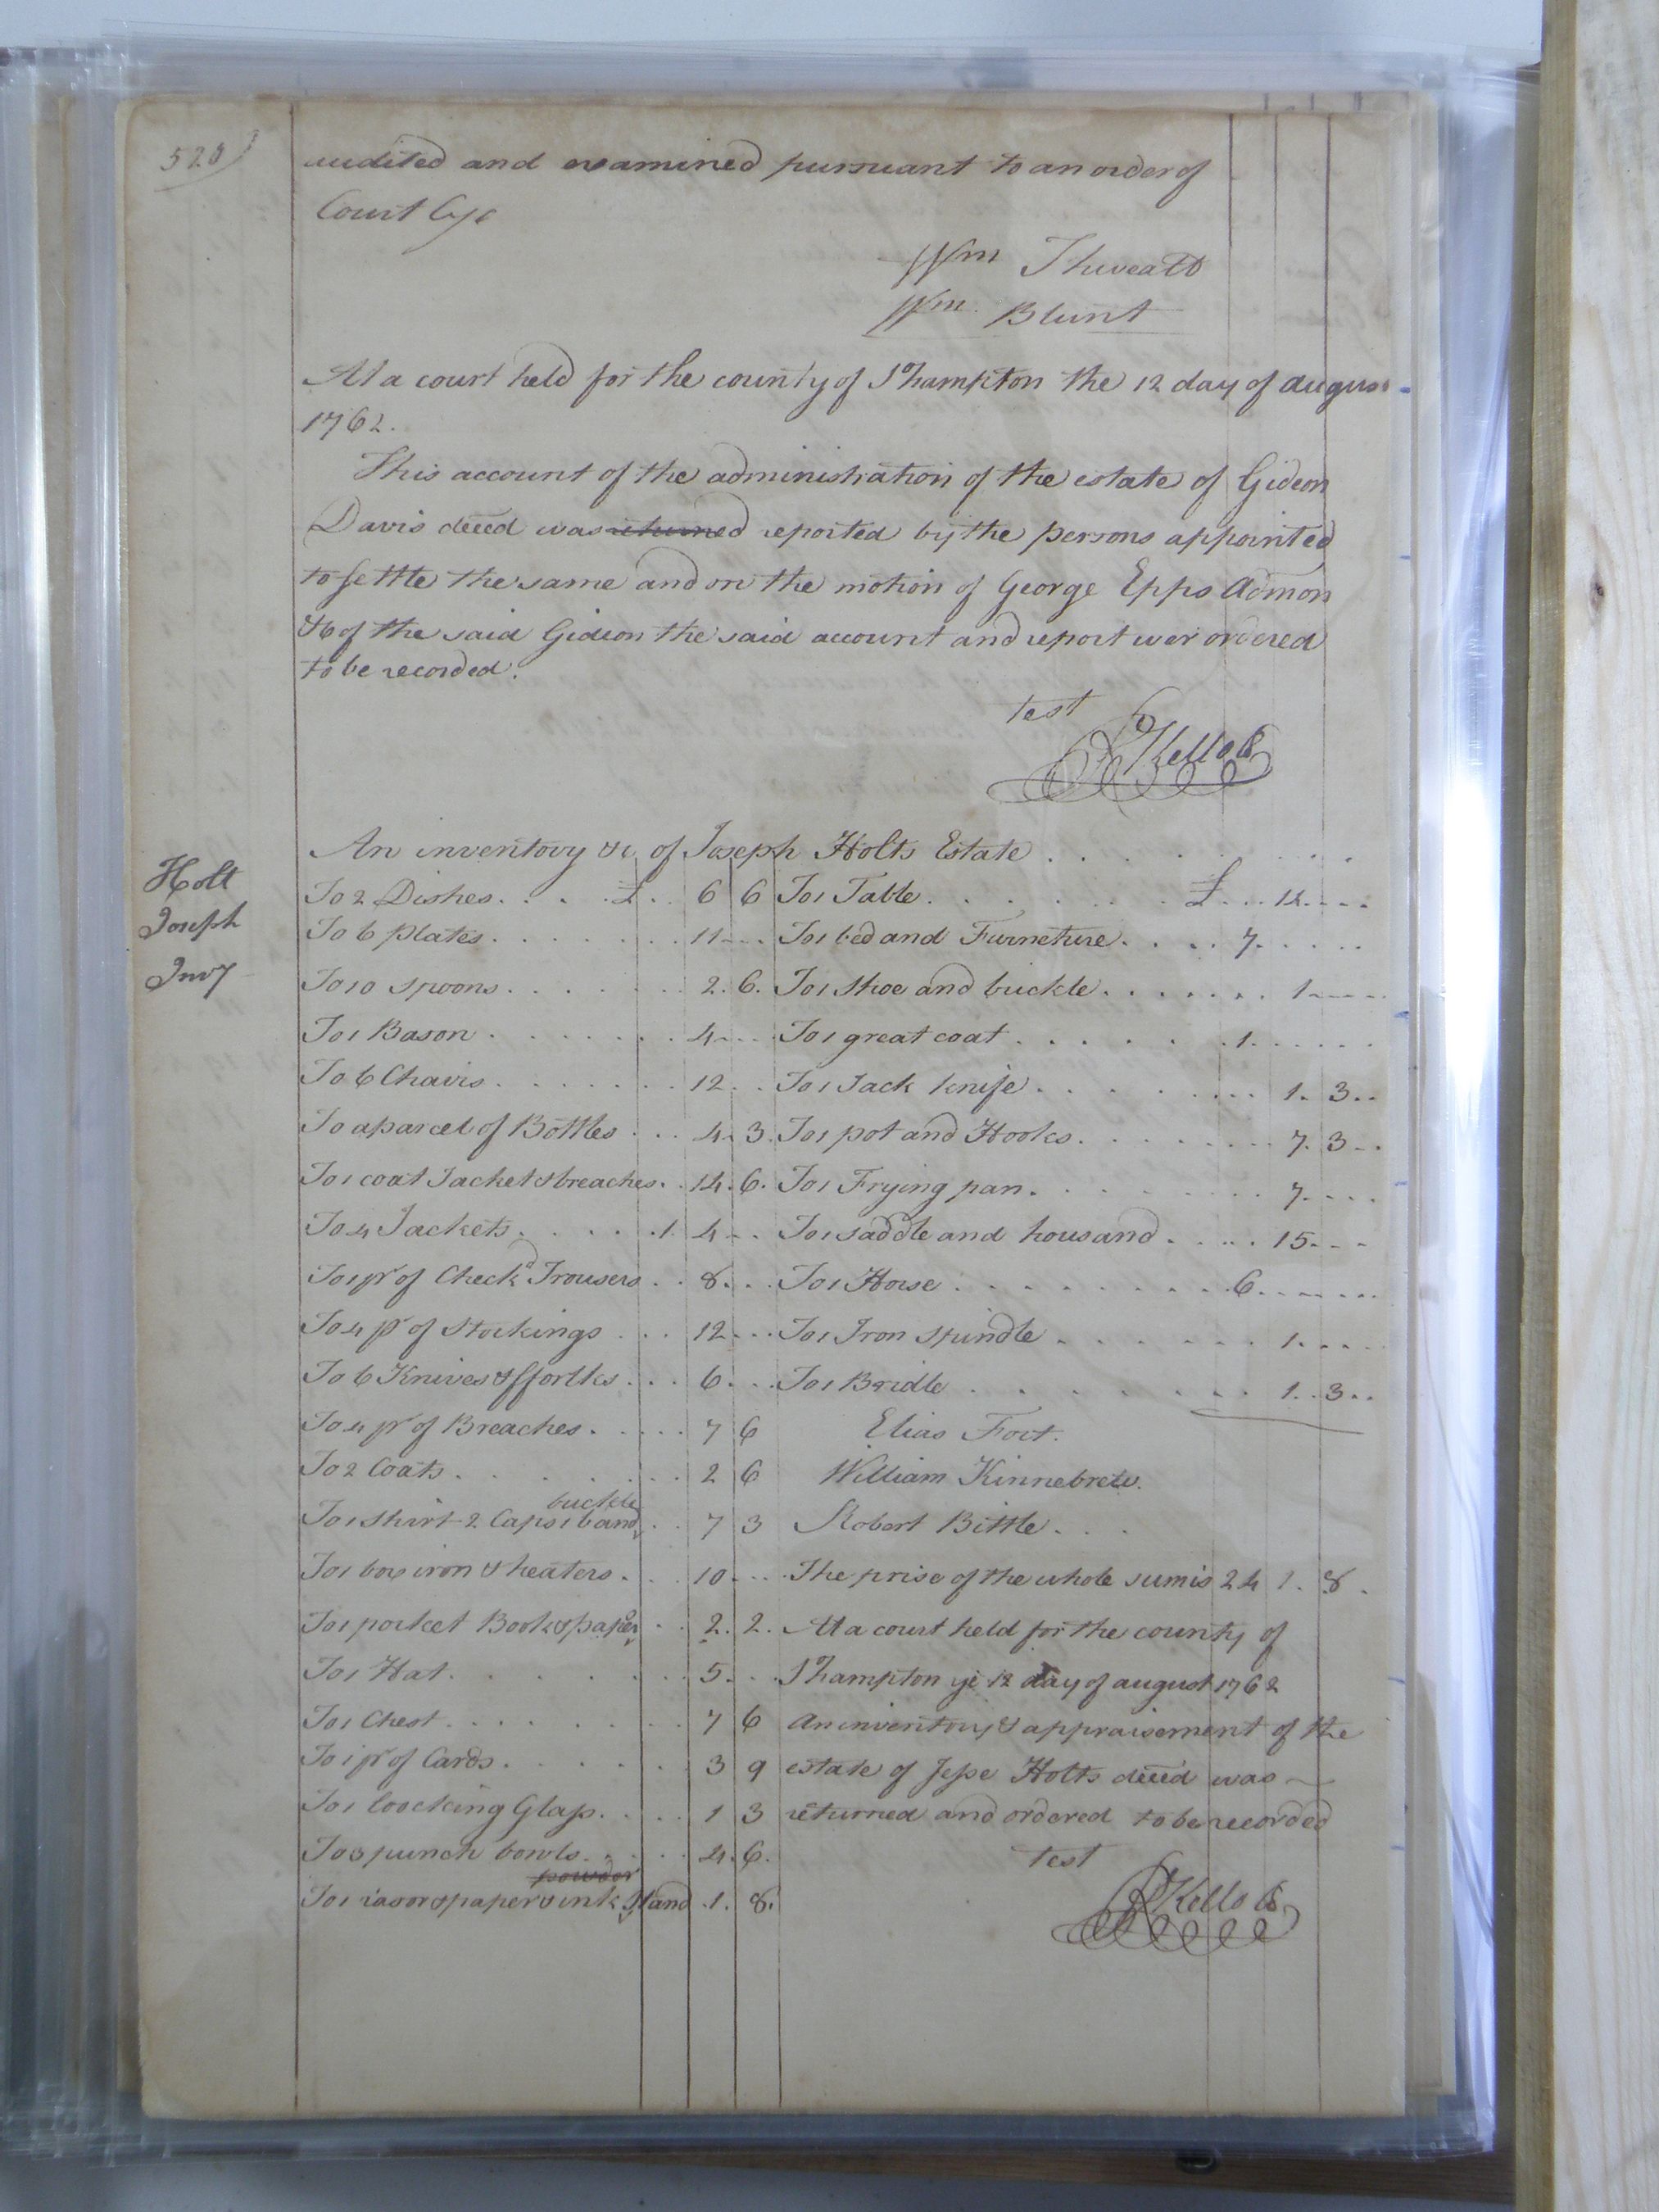 520)
audited and examined pursuant to an order of
Court
Wm Thweatt
Wm. Blunt
At a court held for the county of Shampton the 12 day of august
1762.
This account of the administration of the estate of Gideon
Davis deced was returned reported by the persons appointed
to settle the same and on the motion of George Epps Admon
of the said Gideon the said account and report wer ordered
to be recorded.
test
RKello C
Holt
Joseph
Invy
An inventory &c of Joseph Holts Estate
To 2 Dishes £ 6 6
To 6 plates 11
To 10 spoons 2. 6.
To 1 Bason 4
To 6 Chairs 12
To a parcel of Bottles 4. 3.
To 1 coat Jacket & breaches 14. 6.
To 4 Jackets 1. 4
To 1 pr of Checkd Trousers 8
To 4 pr of Stockings 12
To 6 Knives & fforlks 6
To 4 pr of Breaches 7 6
To 2 Coats 2 6
buckle
To 1 shirt 2 Caps 1 band 7 3
To 1 box iron & heaters 10
To 1 pocket Book & paper 2. 2.
To 1 Hat 5
To 1 Chest 7 6
To 1 pr of Cards 3 9
To 1 loocking Glass 1 3
To 3 punch bowls 4. 6.
powder
To 1 rasor & paper & ink Stand 1. 8.
To 1 Table £ 12
To 1 bed and Furneture 7
To 1 Shoe and buckle 1
To 1 great coat 1
To 1 Jack knife 1. 3
To 1 pot and Hooks 7. 3
To 1 Frying pan 7
To 1 saddle and housand 15
To 1 Horse 6
To 1 Iron spindle 1
To 1 Bridle 1. 3
Elias Fort.
William Kinnebrew.
Robert Bittle
The prise of the whole sum is 24 1. 8.
At a court held for the county of
Shampton ye 12 day of august 1762
An inventory & appraisement of the
estate of Jesse Holts deced was
returned and ordered to be recorded
test
RKello C